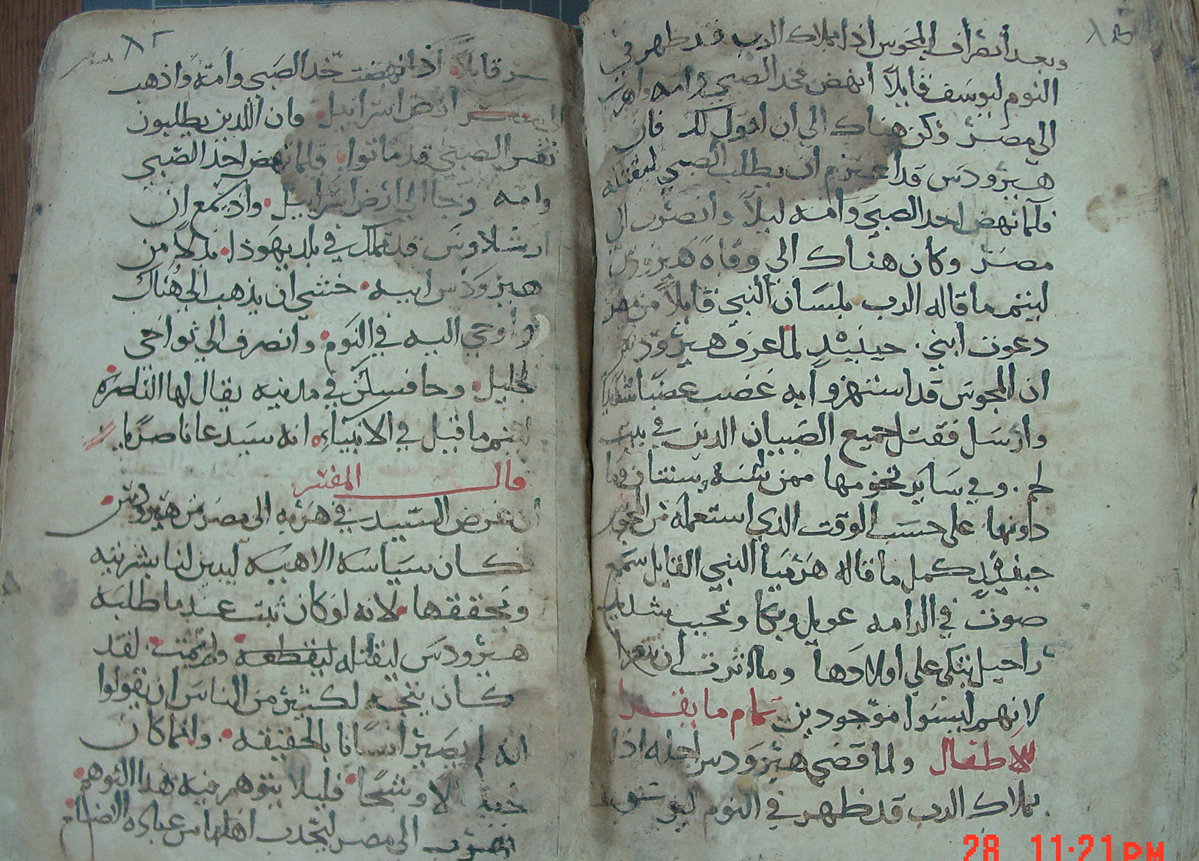 وبعد انصراف المجوس اذا بملاك الرب قد ظهر في
النوم ليوسف قايلاً انهض فخد الصبي وامه واهرب
الي مصر وكن هناك الي ان اقول لك فان
هيرودس قد اعتزم ان يطلب الصبي ليقتله
فلما نهض اخد الصبي وامه ليلاً وانصرف الي
مصر وكان هناك الي وفاة هيرودس
ليتم ما قاله الرب بلسان النبي قايلاً من مصر
دعوت ابني حينيدٍ لما عرف هيرودس
ان المجوس قد استهزوا به غضب غضبا شديدا
وارسل فقتل جميع الصبيان الدين في بيت
لحم وفي ساير تخومها ممن سنه سنتان فما
دونها علي حسب الوقت الدي استعلمه من المجوس
حينيدٍ كمل ما قاله هرميا النبي القايل سمع
صوت في الرامه عويل وبكا ونحيب شديد
راحيل تبكي علي اولادها وما اثرت ان تتعزا
لانهم ليسوا موجودين تمام ما يقرا
للاطفال ولما قضي هيرودس اجله اذا
بملاك الرب قد ظهر في النوم ليوسف
٨٢
مصر قايلاً اذا نهضت خد الصبي وامه واذهب
الي ارض اسراييل فان الدين يطلبون
نفس الصبي قد ماتوا فلما نهض اخد الصبي
وامه وجا الي ارض اسراييل واد سمع ان
ارشلاوس قد تملك في بلد يهودا بدلاً من
هيرودس ابيه خشي ان يذهب الي هناك
واوحي اليه في النوم وانصرف الي نواحي
الجليل وجا فسكن في مدينه يقال لها الناصره
ليتم ما قيل في الانبياء انه سيدعا ناصريا
قال المفسر
ان غرض السيد في هربه الي مصر من هيرودس
كان سياسه الاهيه ليبين لنا بشريته
ويحققها لانه لو كان ثبت عند ما طلبه
هيرودس ليقتله ليقطعه ولم يمت لقد
كان يتجه لكثير من الناس ان يقولوا
انه لم يصير انسانا بالحقيقه وانما كان
خيالا وشبحًا فليلا يتوهم فيه هدا التوهم
الي مصر ليجدب اهلها من عبادة الاصنام
28 11:21 PM